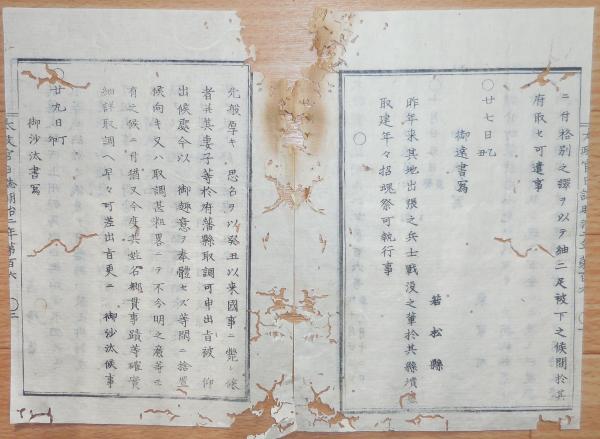 ニ付格別之譯ヲ以テ紬二疋被下之候間於其
府取セ可遣事
〇廿七日
御達書寫
若松縣
昨年来其地出張之兵士戰没之輩於其縣墳
取建年々招魂祭可執行事
〇
先般厚キ 思召ヲ以癸丑以來國事ニ斃レ候
者共其妻子等於府藩縣取調可申出旨被 仰
出候處今以 御趣意ヲ奉體セス等閑ニ捨置
候向キ又ハ取調甚粗畧ニテ不分明之廉等モ
有之候ニ付猶又今度其姓名鄕貫事蹟等確實
細詳取調ヘ早々可差出旨更ニ 御沙汰候事
〇廿九日丁卯
御沙汰書寫
太政官日誌明治二年第百六 〇二